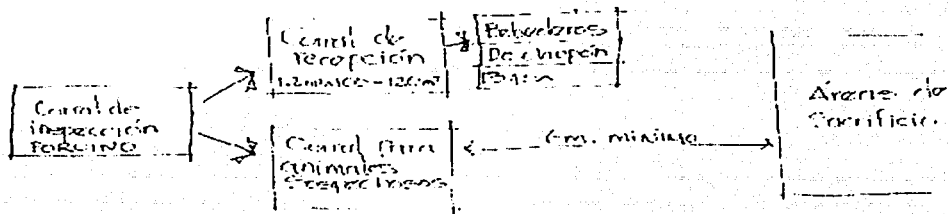 Corral de
inspección
PORCINO
Corral de
recepción
Bebederos
De chupón
Corral para
animales
Sospechosos
m. minimo
Area de
Sacrificio.